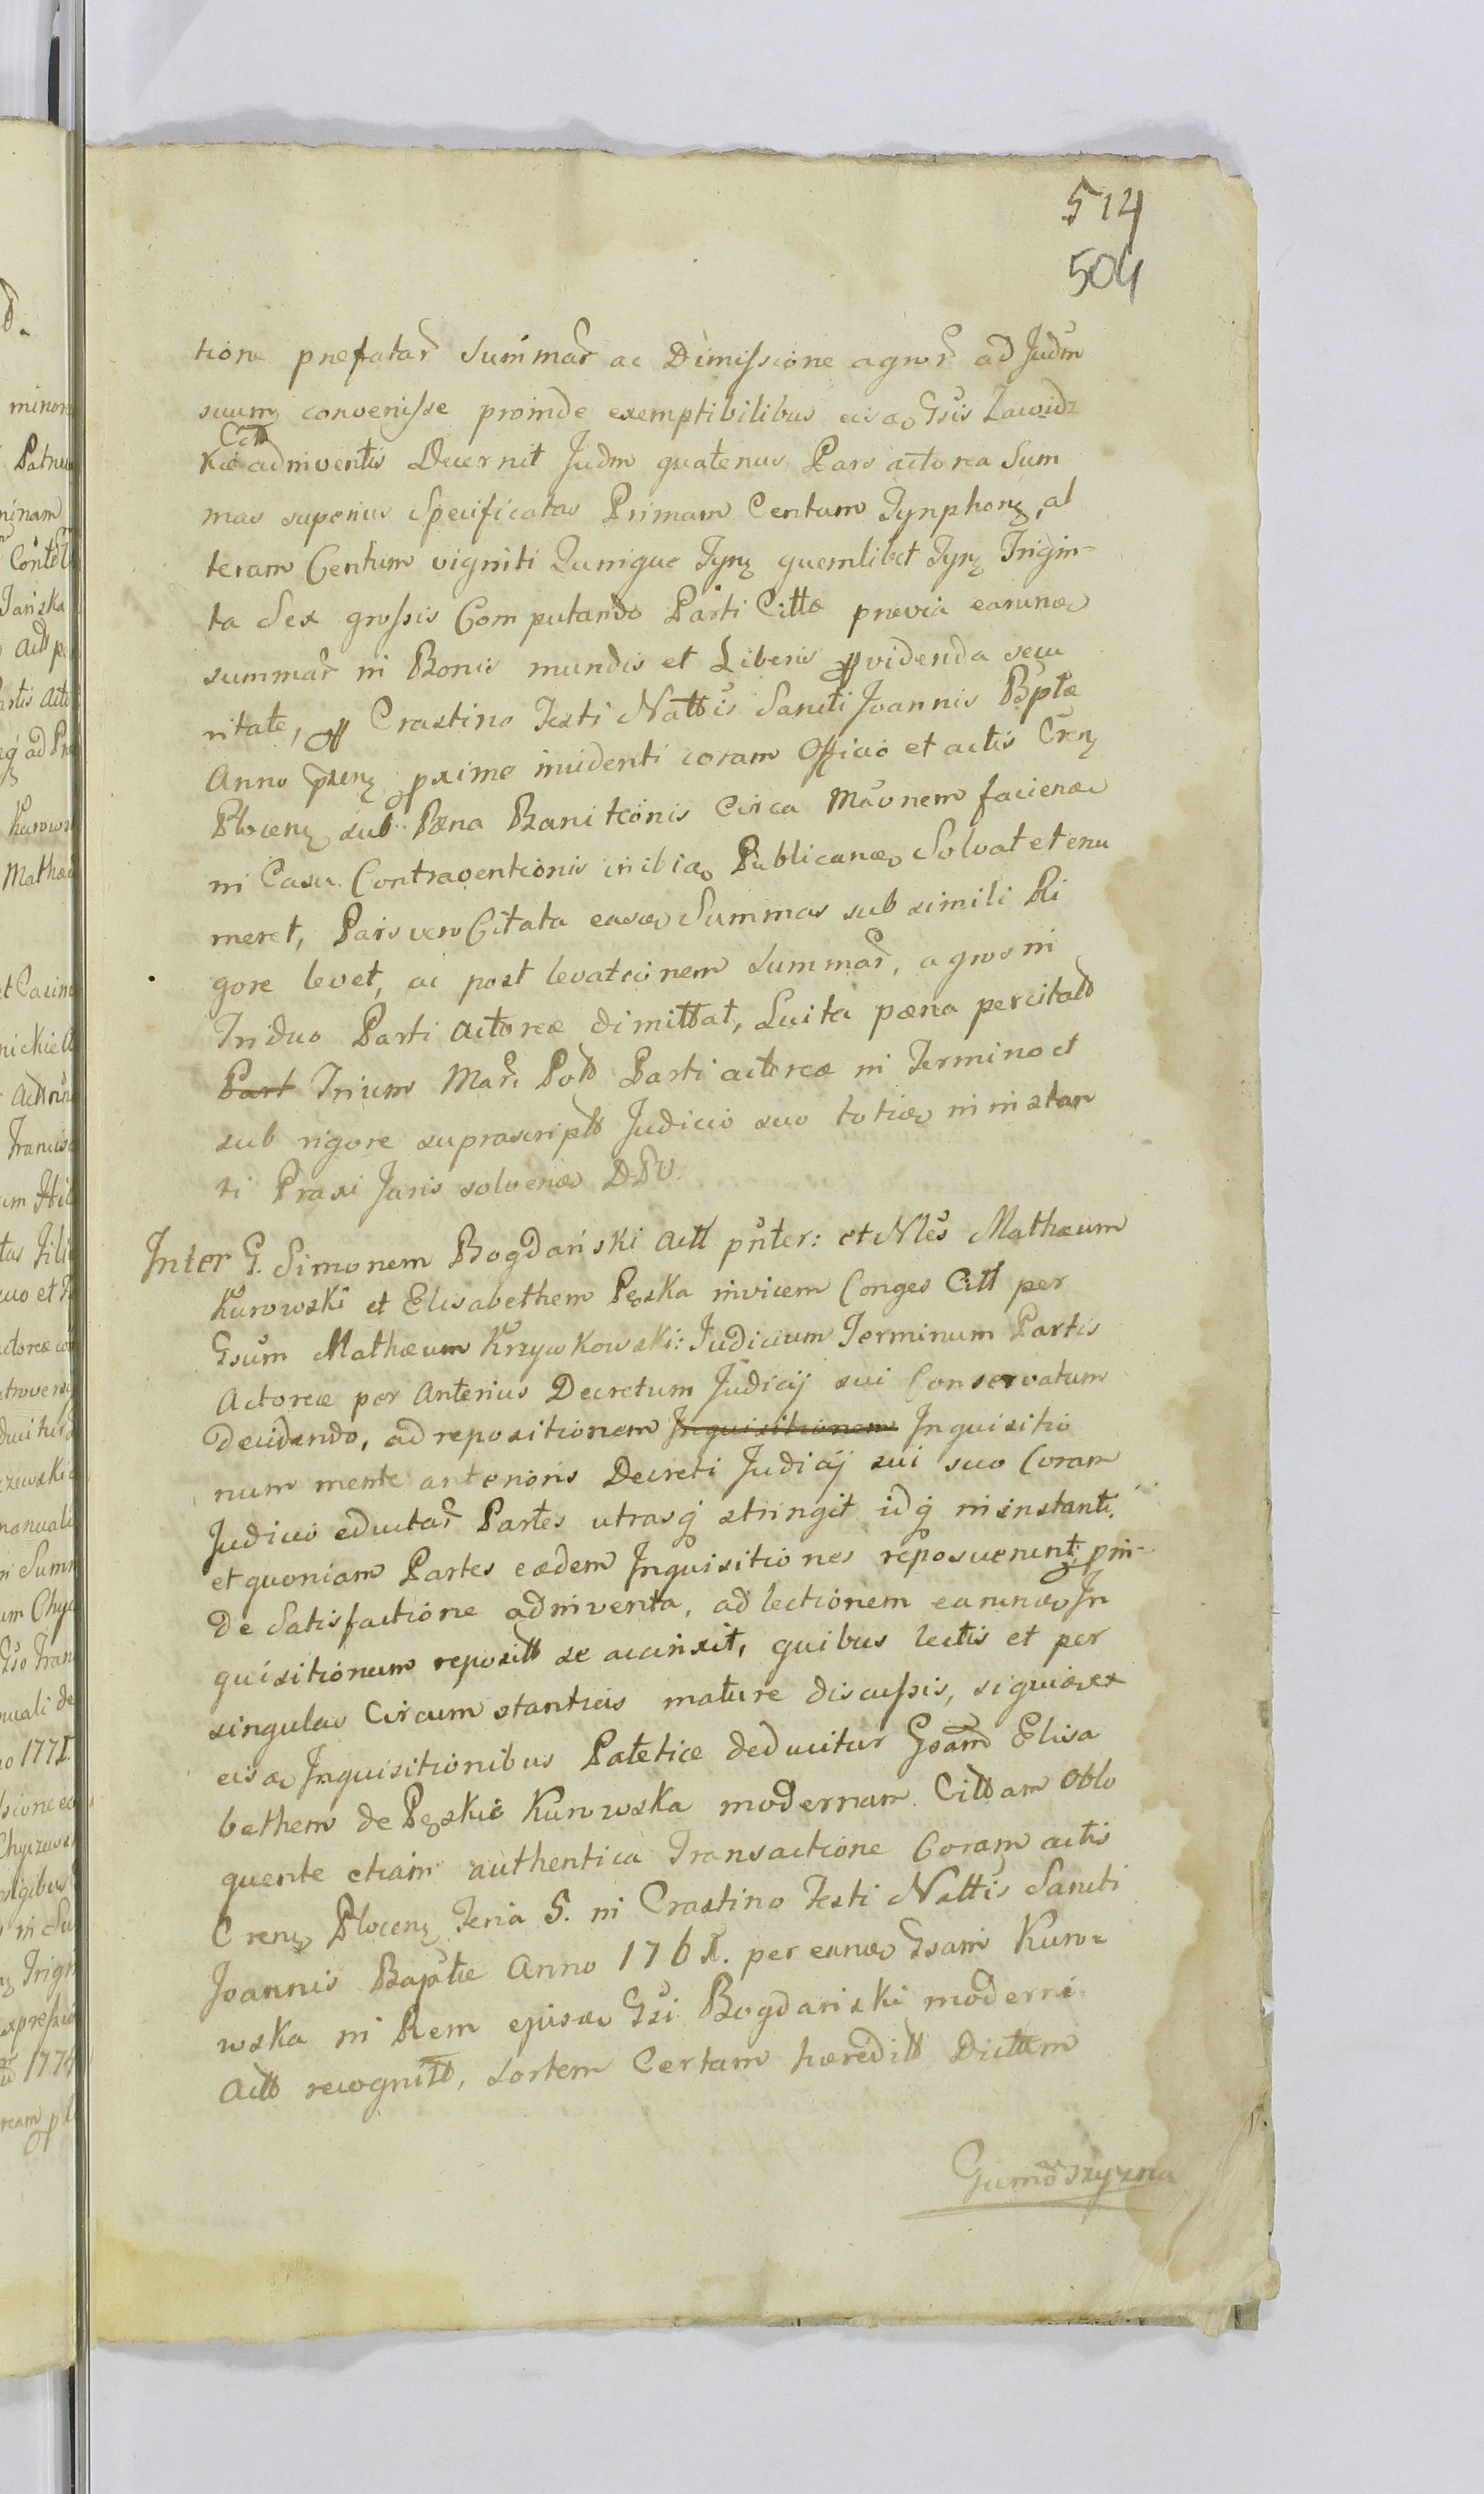 514
504
tione præfatar̃ Summar̃ ac Dimissione agror̃ ad Judm
suum convenisse proinde exemptibilibus Gsis Zawidz
Citt
kie adinventis Decernit Judm quatenus Pars actorea Sum
mas superius Specificatas Primam Centum Tynphonꝫ, al
teram Centum viginti Quinque Tynꝫ quemlibet Tynꝫ Trigin-
ta Sex grossis Computando Parti Cittæ prævia earund
summar̃ in Bonis mundis et Liberis providenda secu
ritate, pro Crastino Festi Nattis Sancti Joannis Bptæ
Anno prænꝫ proxime incidenti coram Officio et actis Crenꝫ
Plocenꝫ sub Pæna Banitionis Circa Mãonem faciend
in Casu Contraventionis inibi Publicand Solvat et enu
meret, Pars vero Citata easd Summas sub simili Ri
gore levet, ac post levationem Summar̃, agros in
Triduo Parti Actoreæ dimittat, Luita pæna per citatt
Part Trium Mar. Poll Parti actoreæ in Termino et
sub rigore suprascriptt Judicio suo toties in instan
ti Praxi Juris solvend DPV.
Inter G. Simonem Bogdański Actt pñter: et Nles Mathæum
Kurowski et Elisabethem Pęska invicem Conges Citt per
Gsum Mathæum Krzywkowski: Judicium Terminum Partis
Actoreæ per Anterius Decretum Judicij sui Conservatum
Decidendo, ad repositionem Inquisitionem Inquisitio
num mente anterioris Decreti Judicij sui suo Coram
Judicio eductar̃ Partes utrasq stringit idq in instanti.
et quoniam Partes eædem Inquisitiones reposuerunt; proin-
de Satisfactione adinventa, ad lectionem earund In
quisitionum repositt se accinxit, quibus lectis et per
singulas Circumstantias mature discussis, siquid ex
eisd Inquisitionibus Patetice deducitur Gsam Elisa
bethem de Pęskie Kurowska modernam Cittam Oblo
quente etiam authentica Transactione Coram actis
Crenꝫ Plocenꝫ Feria 5. in Crastino Festi Nattis Sancti
Joannis Baptæ Anno 176. per eand Gsam Kuro-
wska in Rem ejusd Gsi Bogdański moderni
Actt recognitt, sortem Certam hæreditt Dictam
Gumoszyzna